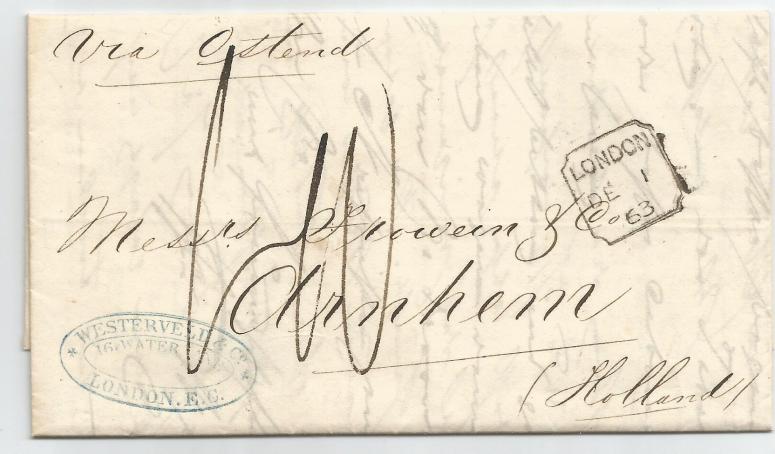 Via Ostend
LONDON
DE 1
63
Messrs Frowein & Co
Arnhem
(Holland)
WESTERVELD & Co
16. WATER
LONDON. E.C.